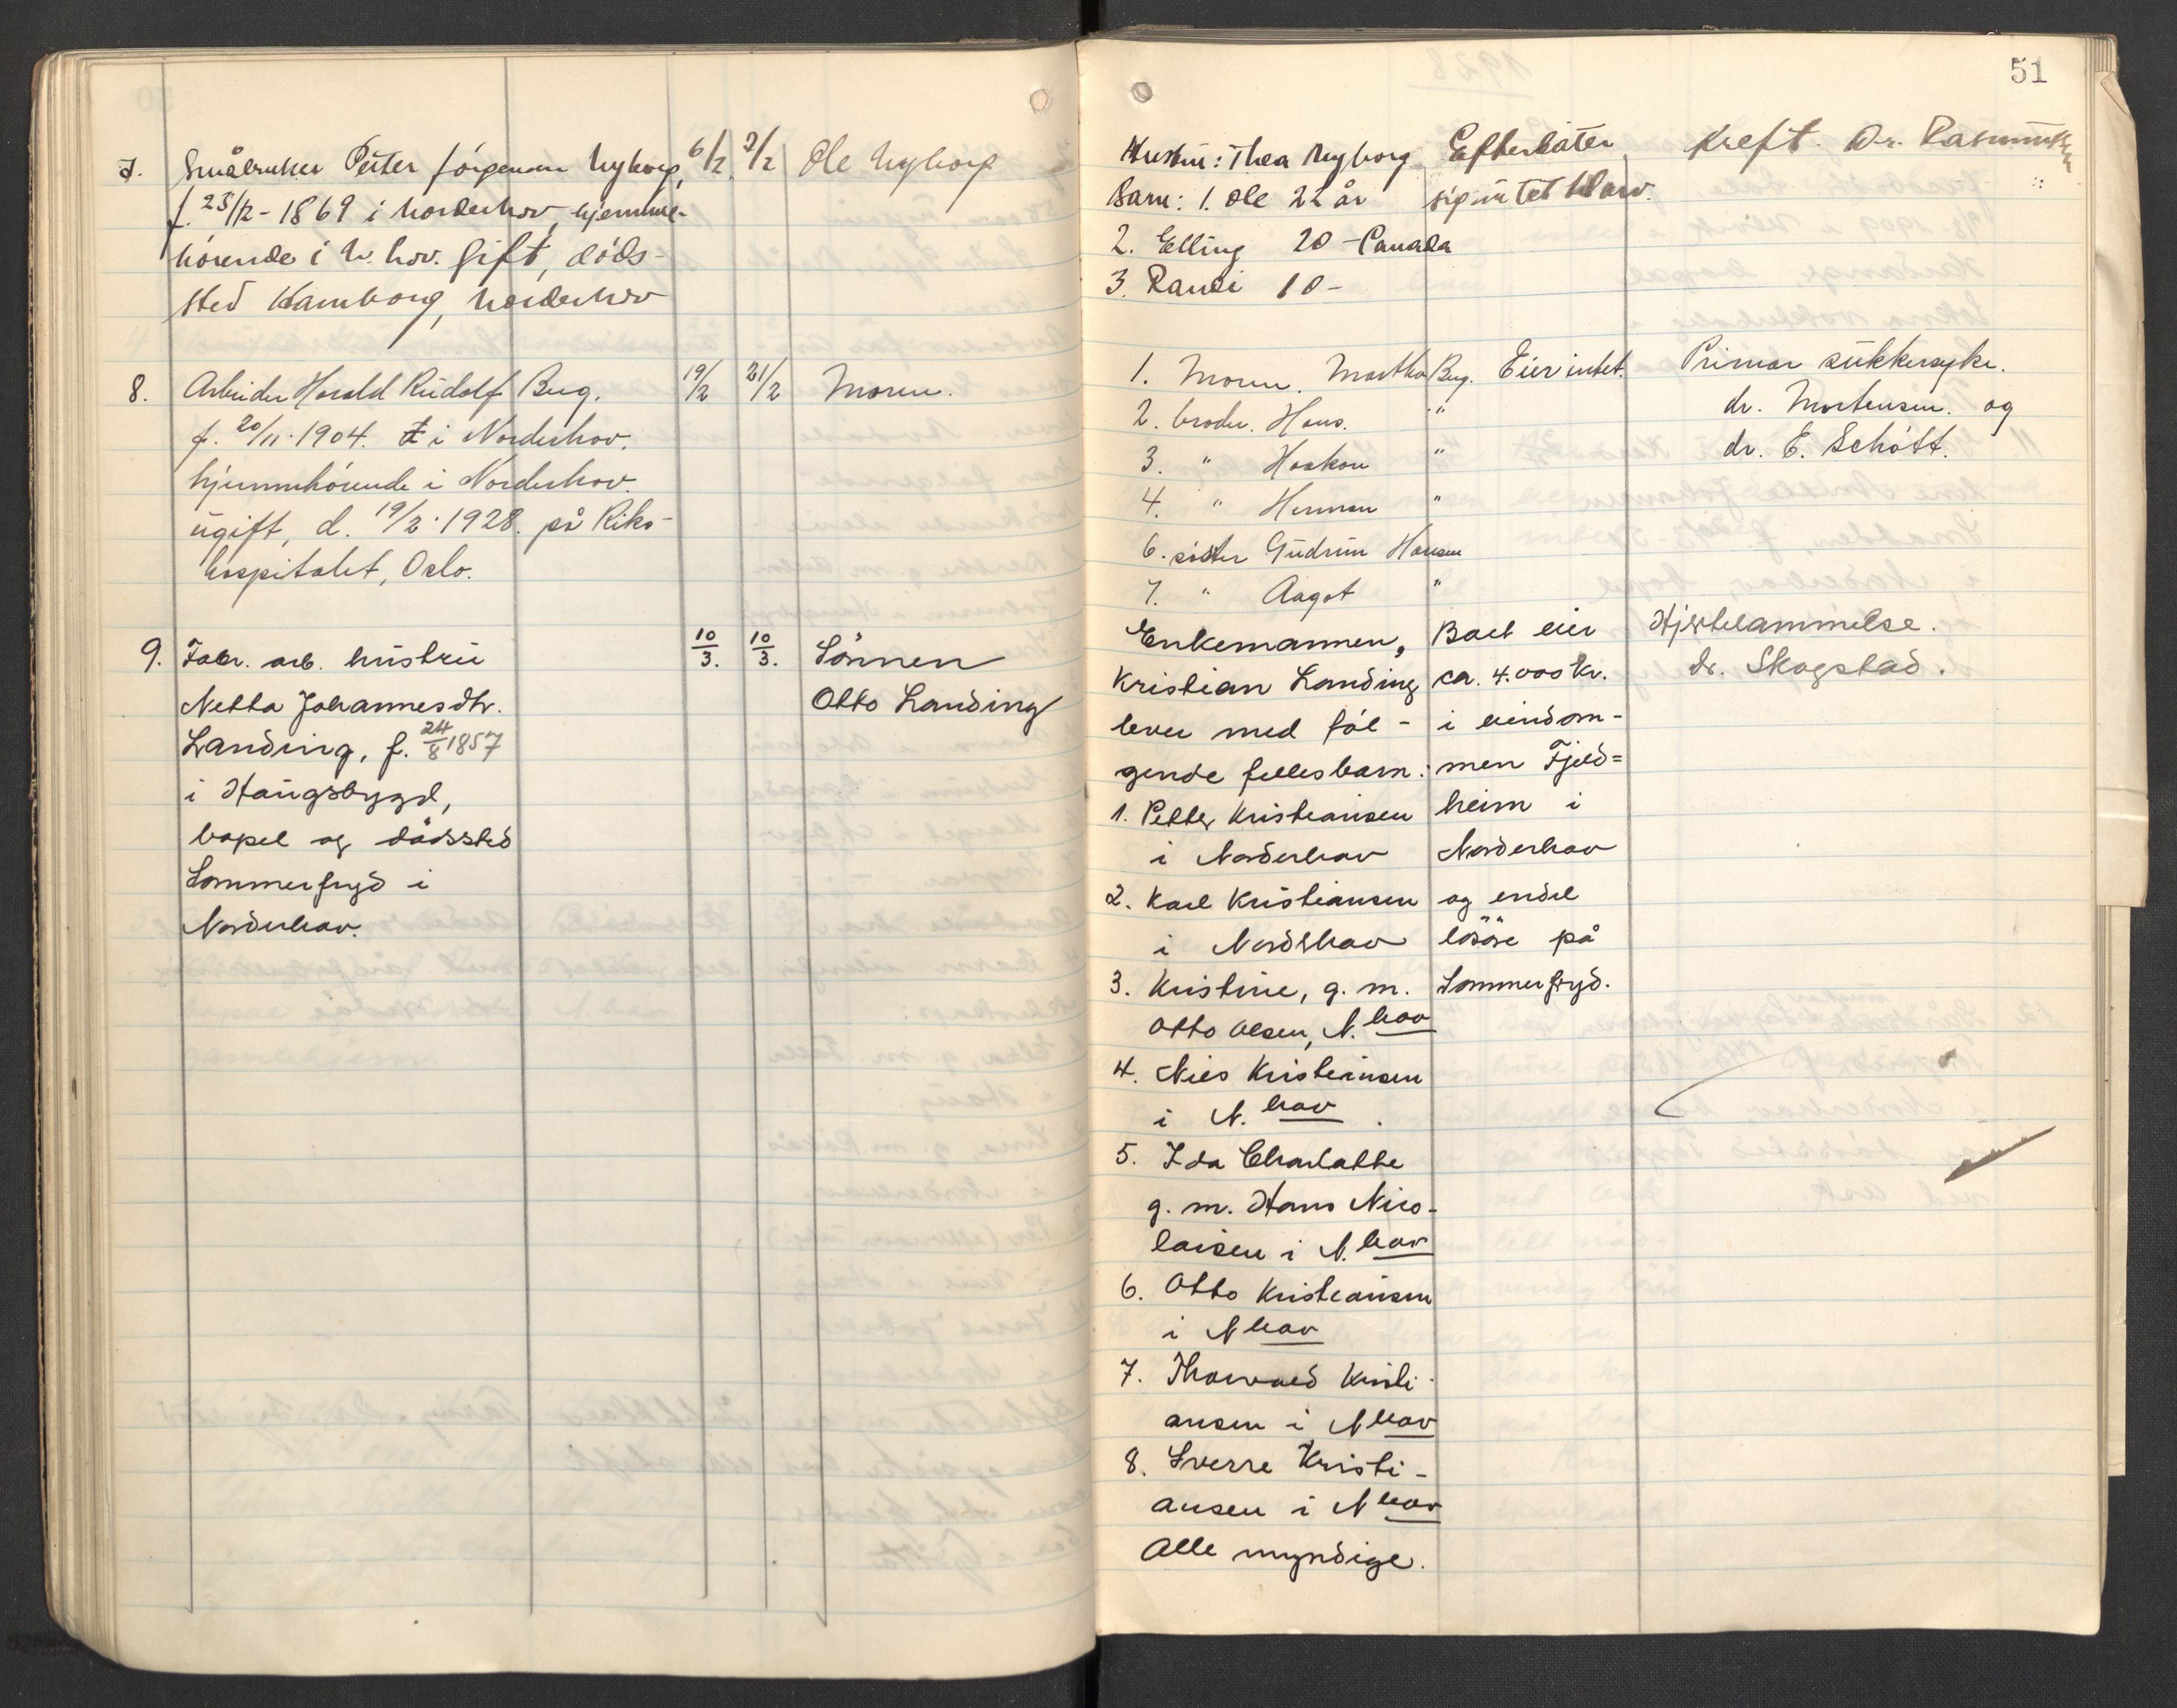 51
7. Småbruker Peter Jörgensen Nyborg, 6/2 7/2 Ole Nyborg
f. 23/12 - 1869 i Norderhov, hjemme-
hörende i N.hov. Gift, döds-
sted Hamborg, Norderhov
Hustru: Thea Nyborg
Barn: 1. Ole 22 år
2. Elling 20 - Canada
3. Randi 10 -
Efterlater
sig intet
Kreft. Dr. Rasmussen
8. Arbeider Harald Rudolf Berg. 19/2 21/2 Moren.
f. 20/11. 1904. i Norderhov.
hjemmehörende i Norderhov.
ugift, d. 19/2. 1928. på Riks-
hospitalet, Oslo.
1. Moren. Martha Berg. Eier intet.
2. broder. Hans. "
3. " Haakon "
4. " Herman "
6. söster Gudrun Hansen
7. " Aagot "
Primær sukkersyke.
dr. Mortensen. og
dr. E. Schött.
9. Fabr. arb. hustru 10/3. 10/3. Sönnen
Netta Johannesdtr. Otto Landing
Landing, f. 24/8 1857
i Haugsbygd,
bopel og dödssted
Sommerfryd i
Norderhov.
Enkemannen,
Kristian Landing
lever med föl-
gende fellesbarn:
1. Petter Kristiansen
i Norderhov
2. Karl Kristiansen
i Nordrhov
3. Kristine, g. m.
Otto Olsen, N.hov
4. Nils Kristiansen
i N.hov.
5. Ida Charlotte
g. m. Hans Nico-
laisen i N.hov
6. Otto Kristiansen
i Nhov
7. Thorvald Kristi-
ansen i Nhov
8. Sverre Kristi-
ansen i Nhov
Alle myndige.
Boet eier
ca. 4.000 kr.
i eiendom-
men Fjeld=
heim i
Norderhov
og endel
lösöre på
Sommerfryd.
Hjertelammelse.
dr. Skogstad.